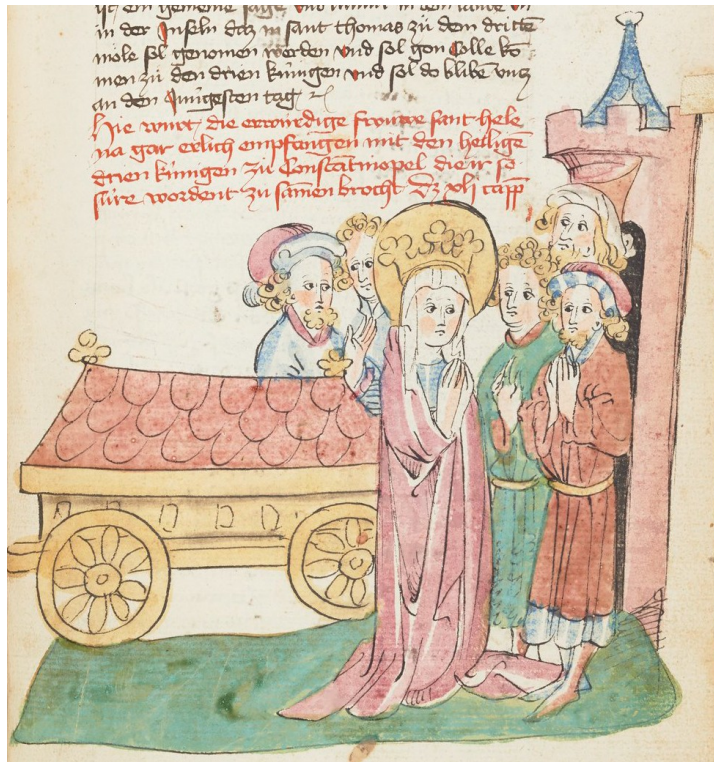 ist ein gemeine sage vnd in dem lande vn
in der Inseln daz m sant thomas zů dem dritte
mole sol genomen werden vnd sol gon Colle ko
men zů den drien kúnigen vnd sol do blibē vntz
an den Jungesten tag
Hie wurt die erwúrdige frouwe sant hele
na gar erlich empfangen mit den heiligē
drien kúnigen zů Constātinopel die ir so
sure wordent zů samen brocht Dz xli capp